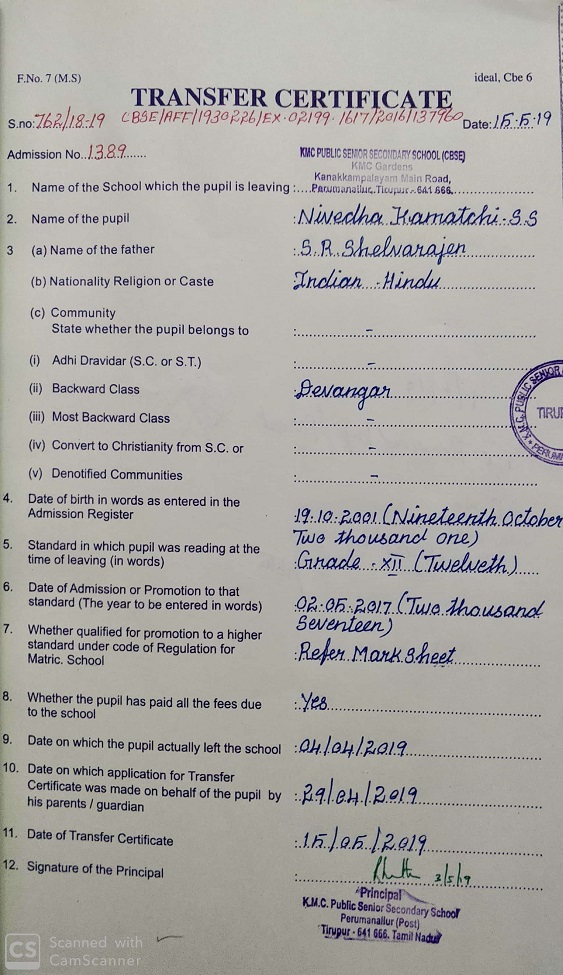 F.No. 7 (M.S)
ideal, Cbe 6
TRANSFER CERTIFICATE
S.no: 762/18-19 CBSE/AFF/1930226/EX-02199-1617/2016/137960 Date: 15.5.19
Admission No. 1389
KMC PUBLIC SENIOR SECONDARY SCHOOL (CBSE)
KMC Gardens
Kanakkampalayam Main Road,
1. Name of the School which the pupil is leaving : Perumanallur, Tirupur - 641 666.
2. Name of the pupil : Nivedha Kamatchi-S.S
3 (a) Name of the father : S.R. Shelvarajen
(b) Nationality Religion or Caste Indian - Hindu
(c) Community
State whether the pupil belongs to : -
(i) Adhi Dravidar (S.C. or S.T.) : -
(ii) Backward Class Devangar
(iii) Most Backward Class : -
(iv) Convert to Christianity from S.C. or : -
(v) Denotified Communities : -
K.M.C. PUBLIC SENIOR
TIRUP
PERUM
4. Date of birth in words as entered in the
Admission Register : 19.10.2001 (Nineteenth October
Two thousand one)
5. Standard in which pupil was reading at the
time of leaving (in words) : Grade - XII (Twelveth)
6. Date of Admission or Promotion to that
standard (The year to be entered in words) : 02.05.2017 (Two thousand
Seventeen)
7. Whether qualified for promotion to a higher
standard under code of Regulation for : Refer Mark Sheet
Matric. School
8. Whether the pupil has paid all the fees due : Yes
to the school
9. Date on which the pupil actually left the school : 04/04/2019
10. Date on which application for Transfer
Certificate was made on behalf of the pupil by : 29/04/2019
his parents / guardian
11. Date of Transfer Certificate : 15/05/2019
12. Signature of the Principal : 3/5/19
Principal
K.M.C. Public Senior Secondary School
Perumanallur (Post)
Tirupur - 641 666. Tamil Nadu
CS Scanned with
CamScanner